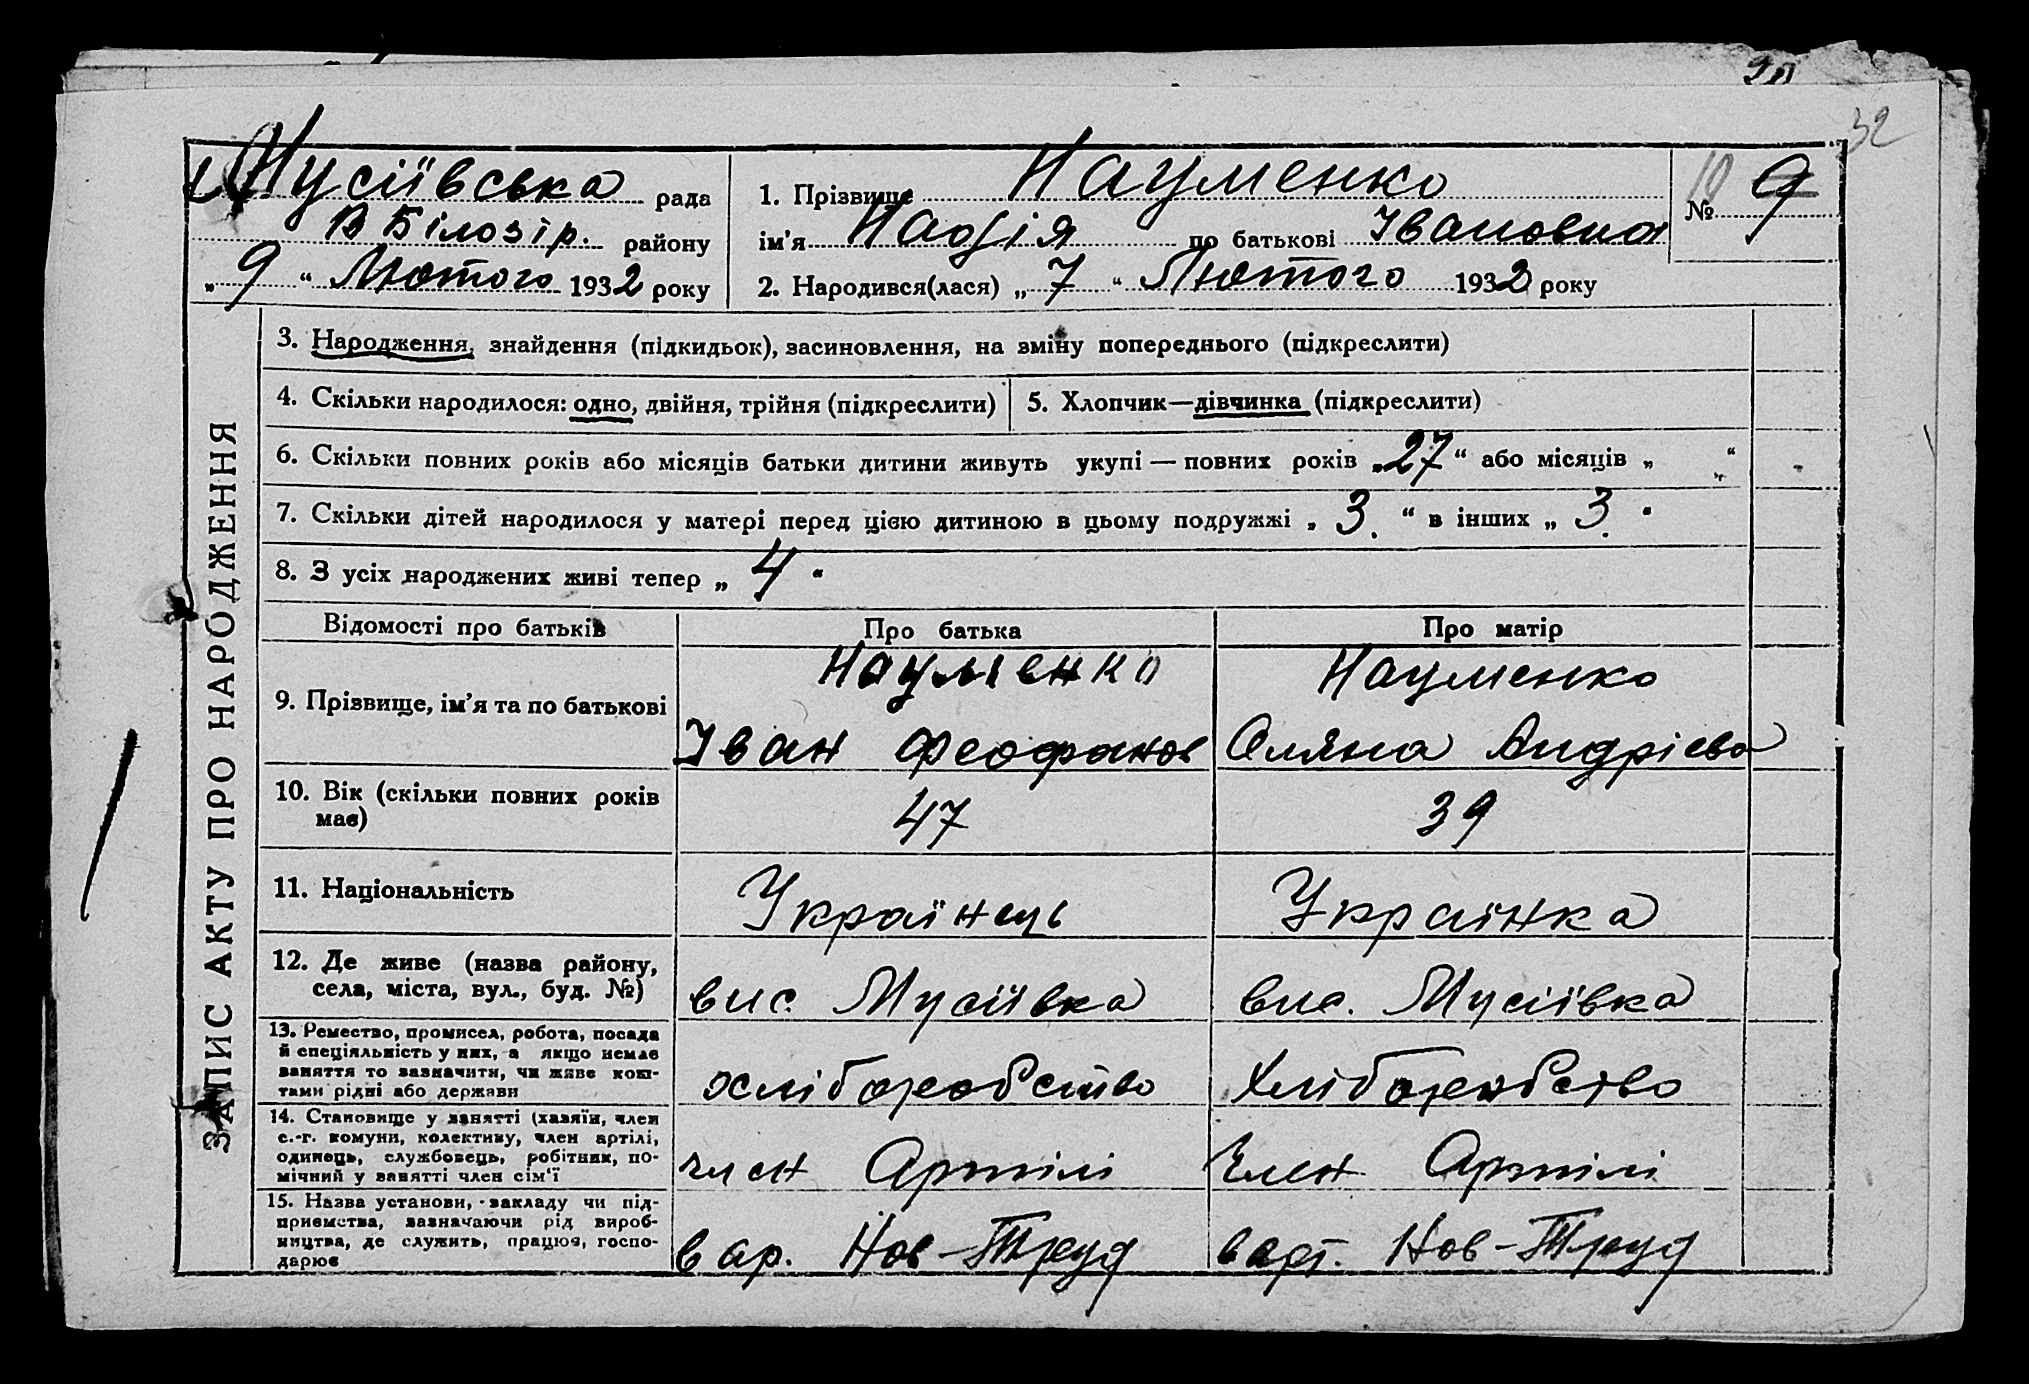 32
Мусіївська рада
В Білозір. району
„ 9 “ Лютого 1932 року
1. Прізвище Науменко
ім’я Надія по батькові Івановна
№ 10 9
2. Народився(лася) „ 7 “ Лютого 1932 року
ЗАПИС АКТУ ПРО НАРОДЖЕННЯ
3. Народження, знайдення (підкидьок), засиновлення, на зміну попереднього (підкреслити)
4. Скільки народилося: одно, двійня, трійня (підкреслити)
5. Хлопчик—дівчинка (підкреслити)
6. Скільки повних років або місяців батьки дитини живуть укупі — повних років „ 27 “ або місяців „ “
7. Скільки дітей народилося у матері перед цією дитиною в цьому подружжі „ 3. “ в інших „ 3. “
8. З усіх народжених живі тепер „ 4 “
Відомості про батьків Про батька Про матір
9. Прізвище, ім’я та по батькові
Науменко
Іван Феофанов
Науменко
Оляна Андрієва
10. Вік (скільки повних років має)
47
39
11. Національність
Українець
Українка
12. Де живе (назва району,
села, міста, вул., буд. №)
вис. Мусіївка
вис. Мусіївка
13. Ремество, промисел, робота, посада
й спеціяльність у них, а якщо немає
заняття то зазначити, чи живе кош-
тами рідні або держави
хліборобство
Хліборобство
14. Становище у занятті (хазяїн, член
с.-г. комуни, колективу, член артілі,
одинець, службовець, робітник, по-
мічний у занятті член сім’ї
член Артілі
Член Артілі
15. Назва установи, закладу чи під-
приємства, зазначаючи рід вироб-
ництва, де служить, працює, госпо-
дарює
в ар. Нов-Труд
в арт. Нов-Труд